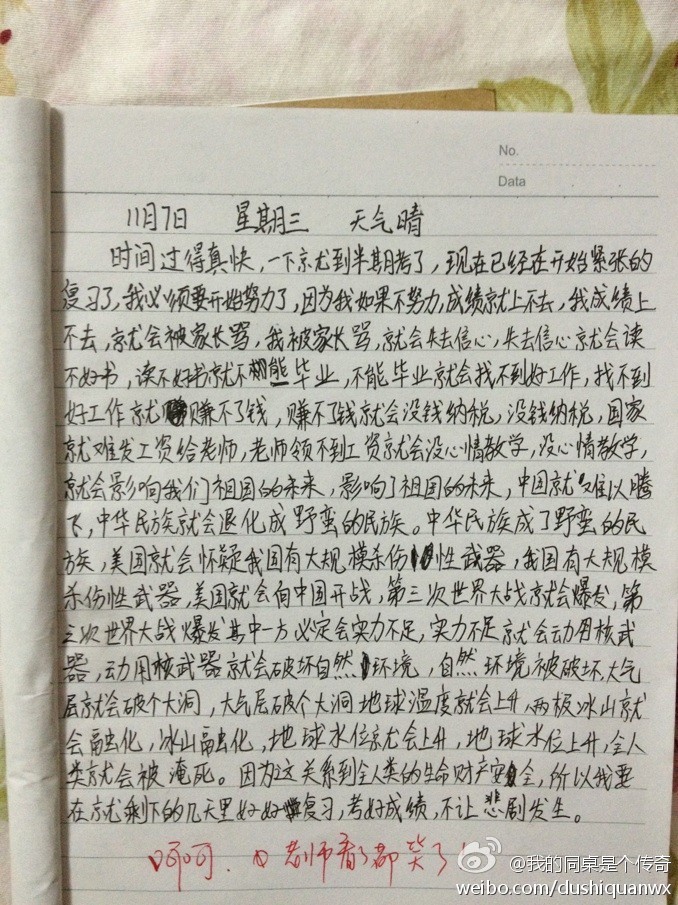 No.
Data
11月7日 星期三 天气晴
时间过得真快，一下就到半期考了，现在已经在开始紧张的
复习了，我必须要开始努力了，因为我如果不努力，成绩就上不去，我成绩上
不去，就会被家长骂，我被家长骂，就会失去信心，失去信心就会读
不好书，读不好书就不能毕业，不能毕业就会找不到好工作，找不到
好工作就赚不了钱，赚不了钱就会没钱纳税，没钱纳税，国家
就难发工资给老师，老师领不到工资就会没心情教学，没心情教学，
就会影响我们祖国的未来，影响了祖国的未来，中国就难以腾
飞，中华民族就会退化成野蛮的民族。中华民族成了野蛮的民
族，美国就会怀疑我国有大规模杀伤性武器，我国有大规模
杀伤性武器，美国就会向中国开战，第三次世界大战就会爆发，第
三次世界大战爆发其中一方必定会实力不足，实力不足就会动用核武
器，动用核武器就会破坏自然环境，自然环境被破坏，大气
层就会破个大洞，大气层破个大洞地球温度就会上升，两极冰山就
会融化，冰山融化，地球水位就会上升，地球水位上升，全人
类就会被淹死。因为这关系到全人类的生命财产安全，所以我要
在就剩下的几天里好好复习，考好成绩，不让悲剧发生。
呵呵 老师看了都笑了
@我的同桌是个传奇
weibo.com/dushiquanwx